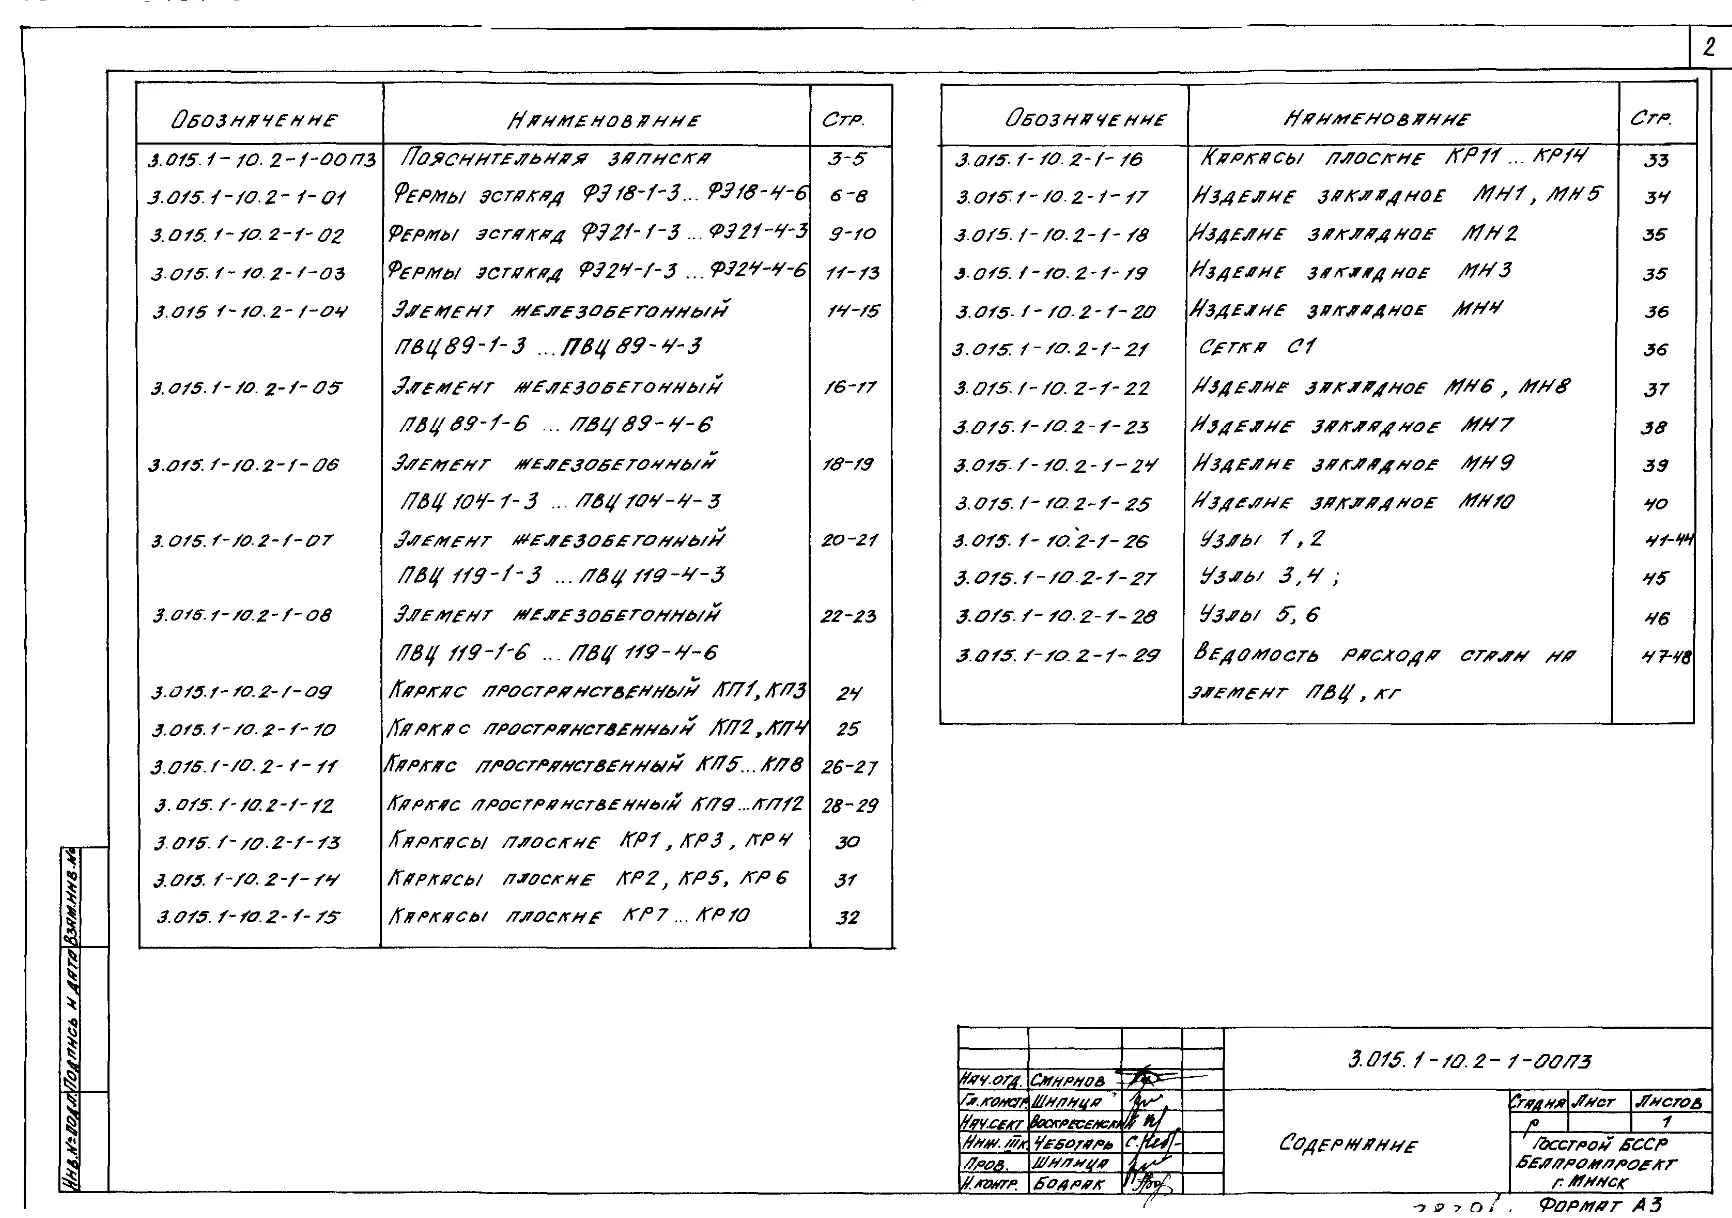 2
Обозначение Наименование Стр.
3.015.1-10.2-1-00ПЗ Пояснительная записка 3-5
3.015.1-10.2-1-01 Фермы эстакад ФЭ18-1-3...ФЭ18-4-6 6-8
3.015.1-10.2-1-02 Фермы эстакад ФЭ21-1-3...ФЭ21-4-3 9-10
3.015.1-10.2-1-03 Фермы эстакад ФЭ24-1-3...ФЭ24-4-6 11-13
3.015 1-10.2-1-04 Элемент железобетонный 14-15
ПВЦ89-1-3 ...ПВЦ 89-4-3
3.015.1-10.2-1-05 Элемент железобетонный 16-17
ПВЦ 89-1-6 ... ПВЦ 89-4-6
3.015.1-10.2-1-06 Элемент железобетонный 18-19
ПВЦ 104-1-3 ... ПВЦ 104-4-3
3.015.1-10.2-1-07 Элемент железобетонный 20-21
ПВЦ 119-1-3 ... ПВЦ 119-4-3
3.015.1-10.2-1-08 Элемент железобетонный 22-23
ПВЦ 119-1-6 ... ПВЦ 119-4-6
3.015.1-10.2-1-09 Каркас пространственный КП1, КП3 24
3.015.1-10.2-1-10 Каркас пространственный КП2, КП4 25
3.015.1-10.2-1-11 Каркас пространственный КП5...КП8 26-27
3.015.1-10.2-1-12 Каркас пространственный КП9...КП12 28-29
3.015.1-10.2-1-13 Каркасы плоские КР1, КР3, КР4 30
3.015.1-10.2-1-14 Каркасы плоские КР2, КР5, КР6 31
3.015.1-10.2-1-15 Каркасы плоские КР7...КР10 32
Обозначение Наименование Стр.
3.015.1-10.2-1-16 Каркасы плоские КР11...КР14 33
3.015.1-10.2-1-17 Изделие закладное МН1, МН5 34
3.015.1-10.2-1-18 Изделие закладное МН2 35
3.015.1-10.2-1-19 Изделие закладное МН3 35
3.015.1-10.2-1-20 Изделие закладное МН4 36
3.015.1-10.2-1-21 Сетка С1 36
3.015.1-10.2-1-22 Изделие закладное МН6, МН8 37
3.015.1-10.2-1-23 Изделие закладное МН7 38
3.015.1-10.2-1-24 Изделие закладное МН9 39
3.015.1-10.2-1-25 Изделие закладное МН10 40
3.015.1-10.2-1-26 Узлы 1, 2 41-44
3.015.1-10.2-1-27 Узлы 3, 4 ; 45
3.015.1-10.2-1-28 Узлы 5, 6 46
3.015.1-10.2-1-29 Ведомость расхода стали на 47-48
элемент ПВЦ, кг
Инв.№подл. Подпись и дата Взам.инв.№
3.015.1-10.2-1-00ПЗ
Нач.отд. Смирнов
Гл.констр. Шипица
Нач.сект Воскресенски
Инж. IIк. Чеботарь
Пров. Шипица
Н.контр. Бодряк
Содержание
Стадия Лист Листов
Р 1
Госстрой БССР
Белпромпроект
г. Минск
Формат А3